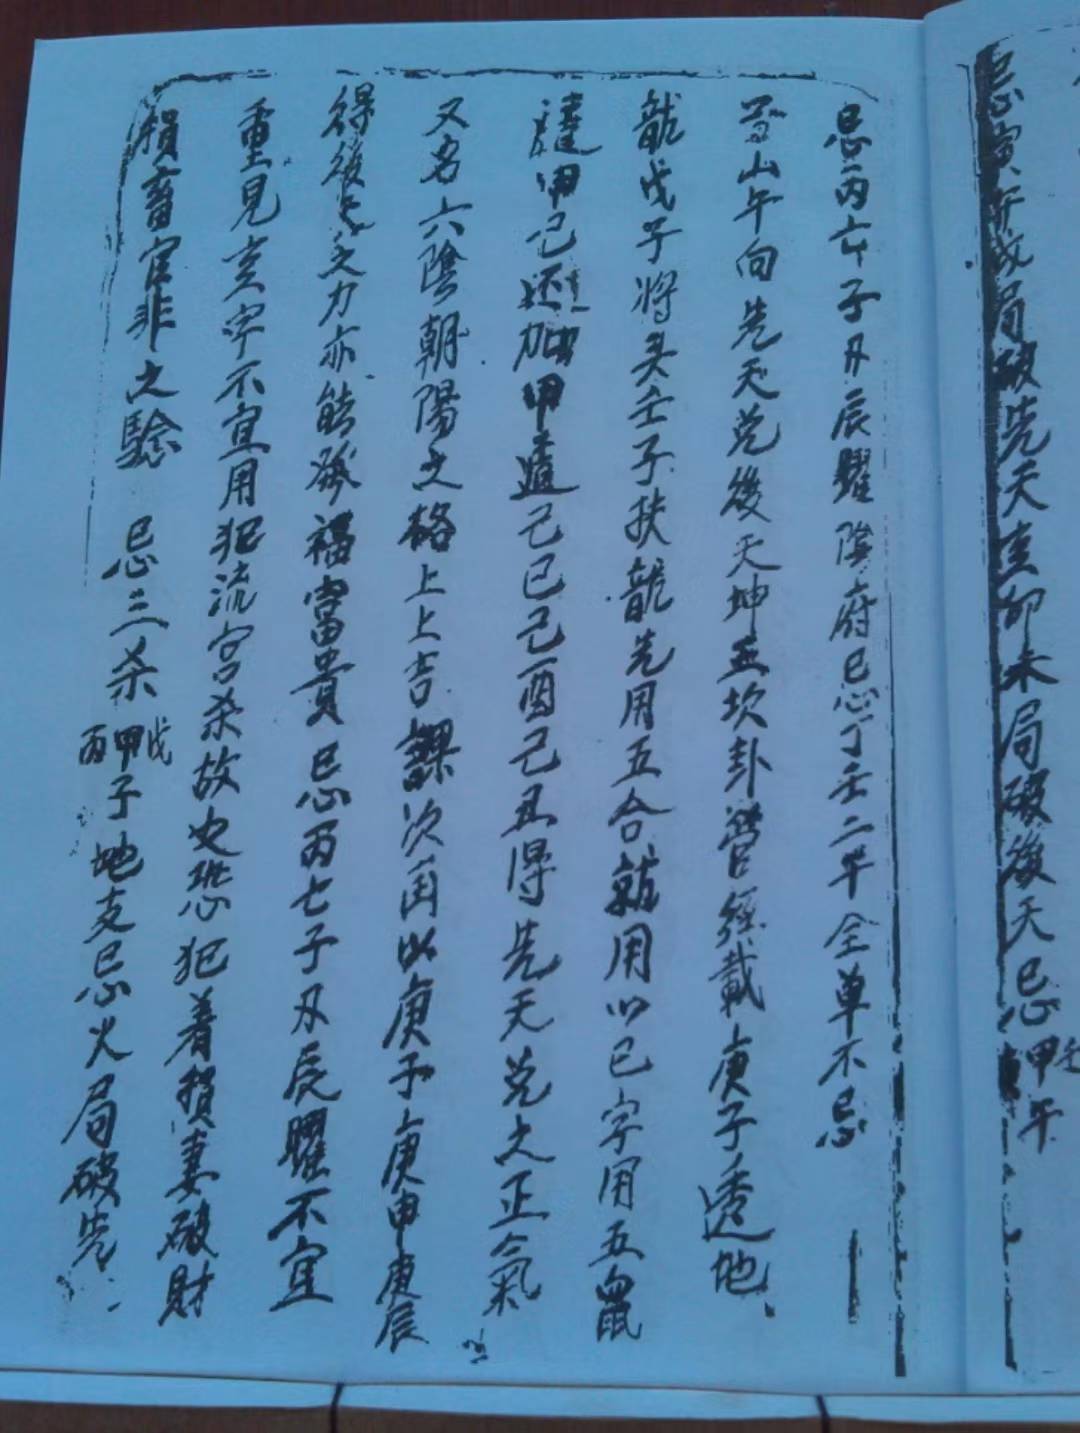 忌寅午戌局破先天亥卯未局破後天忌甲壬午
忌丙亡子丑辰曜陰府忌丁壬二干全單不忌
子山午向先天兌後天坤正坎卦營經載庚子透地
龍戊子將头壬子扶龍先用五合龍用以巳字用五鼠
遁甲己还加甲遁己巳己酉己丑得先天兌之正氣
又名六陰朝陽之格上上吉課次再以庚子庚申庚辰
得後天之力亦能發福富貴忌丙七子丑辰曜不宜
重見亥字不宜用犯流宫杀故也恐犯着損妻破財
損畜官非之驗 忌三杀丙甲戊子地支忌火局破先